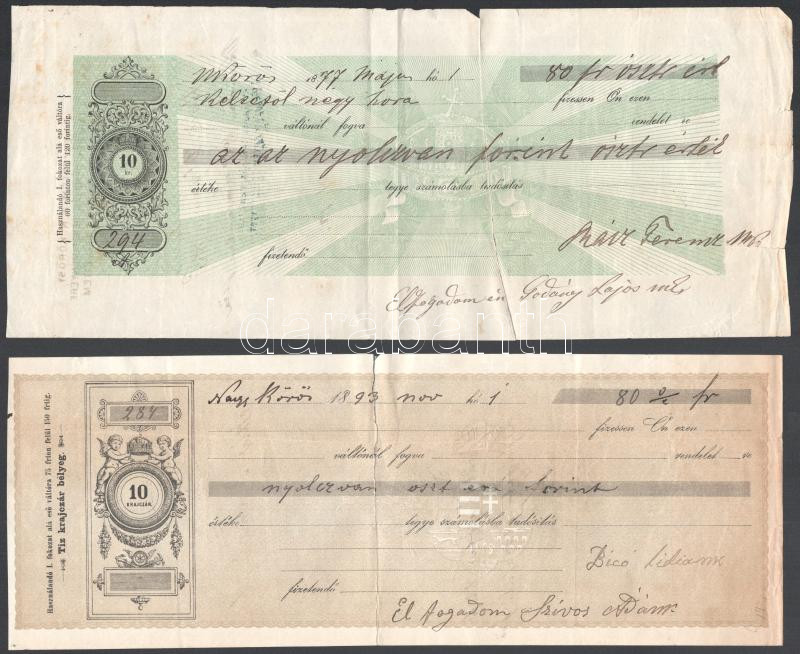 { Használandó I. fokozat alá eső váltóra }
{ 60 forinton felül 120 forintig. }
10
kr.
294
NKőrös 1877 Május hó 1 80 fr osztr ért
nagy hora fizessen Ön ezen
váltónál fogva rendelet se
az az nyolczvan forint osztr érték
értéke tegye számolásba tudósítás
Rácz Ferencz mk
fizetendő
Elfogadom én Godány Lajos mk
darabanth
Használandó I. fokozat alá eső váltóra 75 frton felül 150 frtig.
Tiz krajczár bélyeg.
287
10
KRAJCZÁR.
Nagy Kőrös 1893 nov hó 1 80 o/e fr
fizessen Ön ezen
váltónál fogva rendelet se
nyolczvan oszt ért forint
értéke tegye számolásba tudósítás
Bicó
fizetendő
El fogadom Szívos Ádám